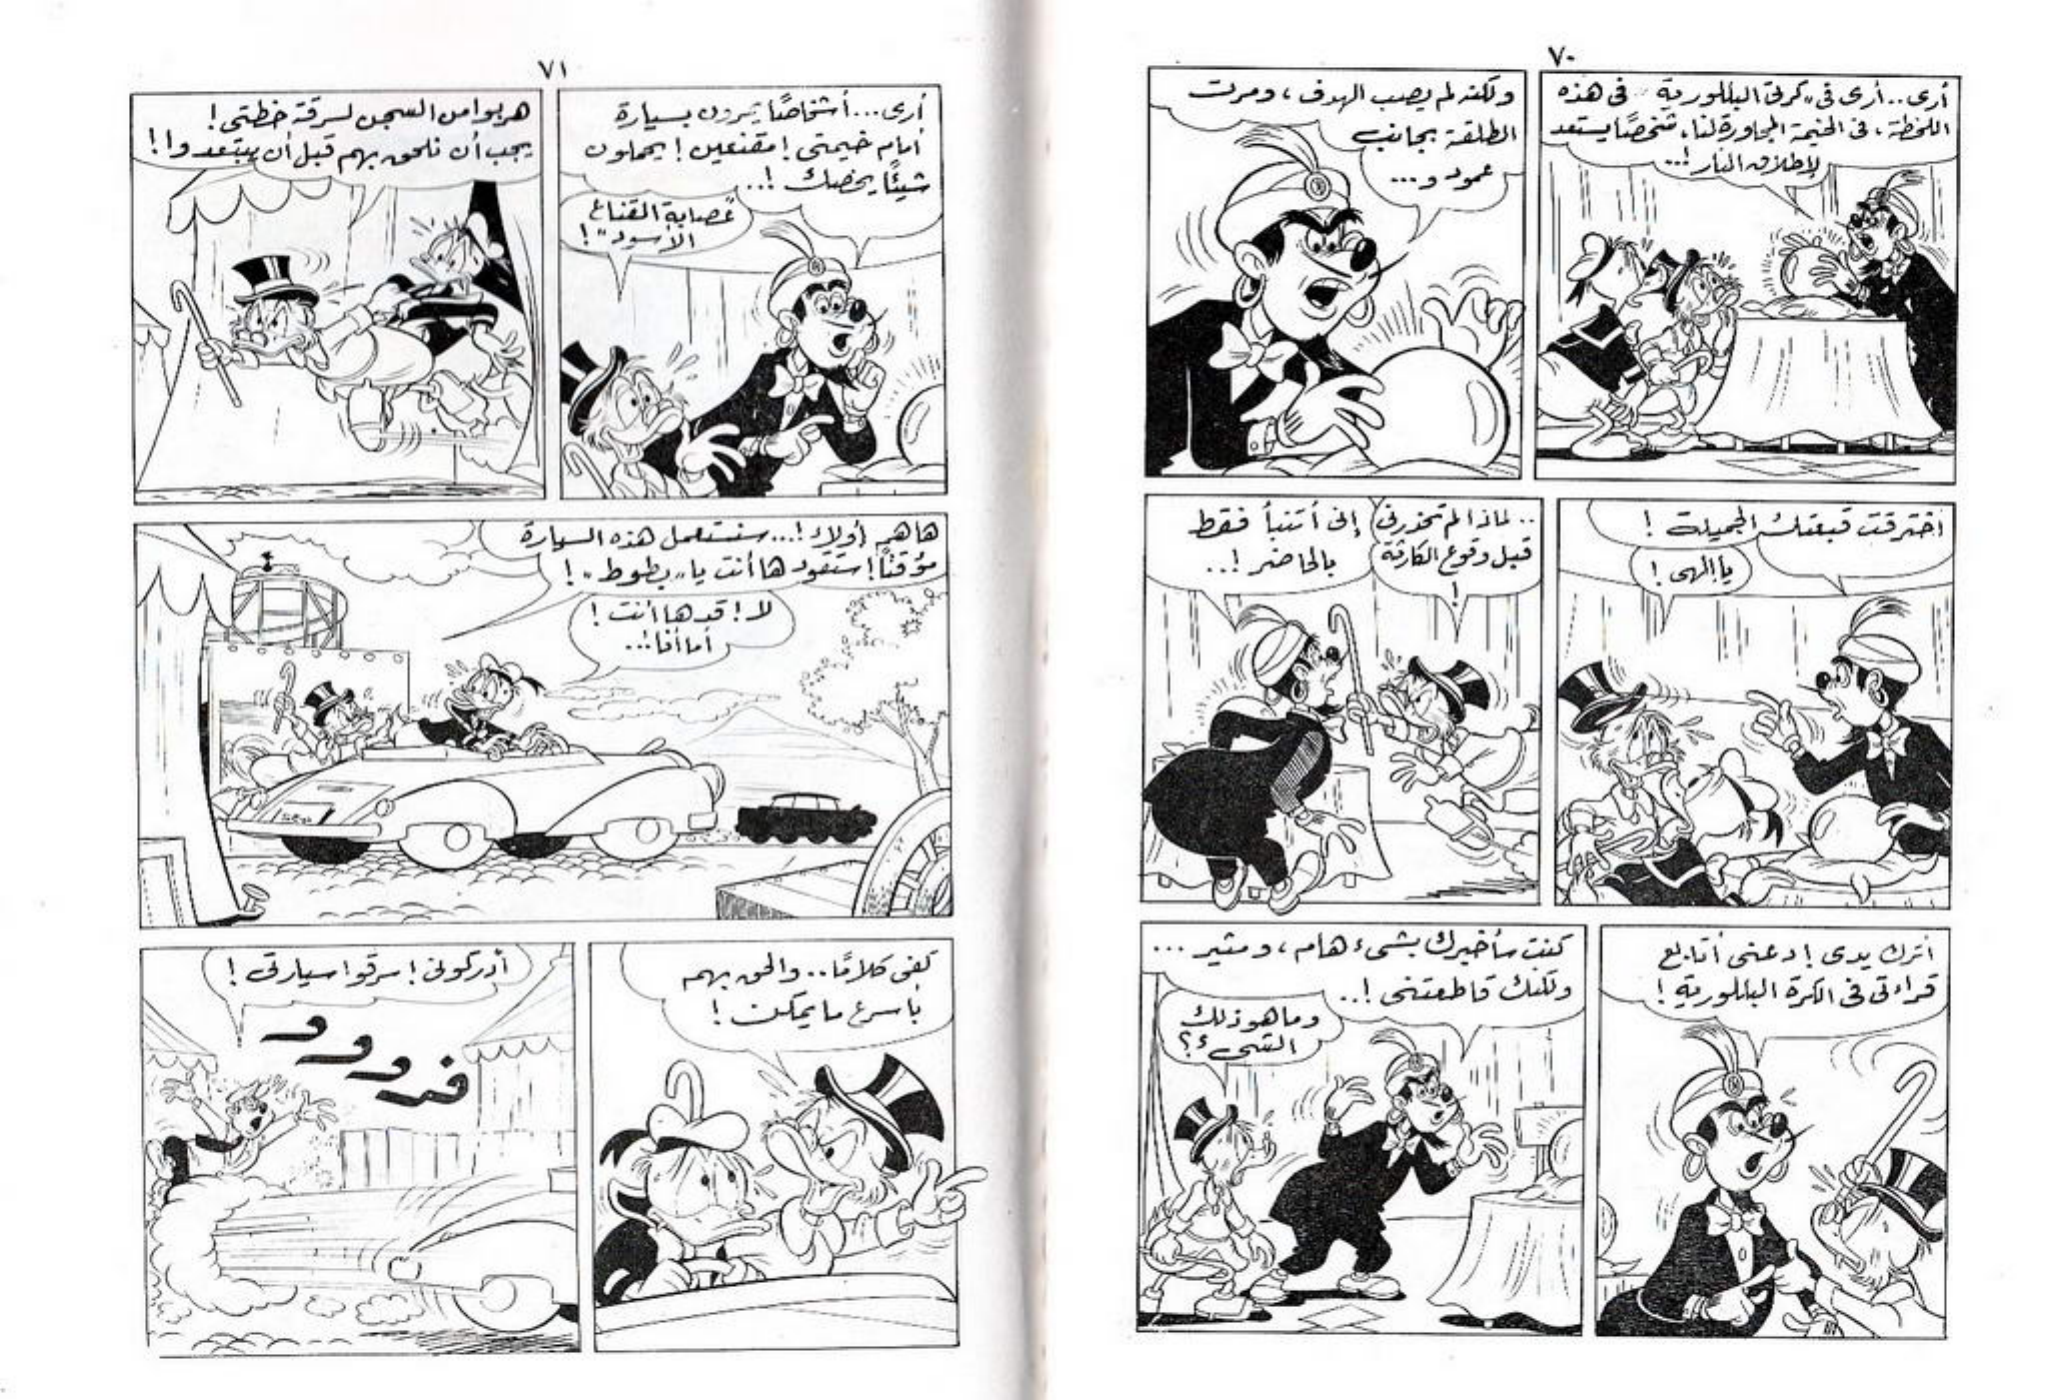 ٧٠
أرى.. أرى فى "كرتى البللورية" فى هذه
اللحظة، فى الخيمة المجاورة لنا، شخصًا يستعد
لإطلاق النار!..
ولكنه لم يصب الهدف، ومرت
الطلقة بجانب
عمود و...
اخترقت قبعتك الجميلة!
يا إلهى!
.. لماذا لم تحذرنى
قبل وقوع الكارثة
!
إنى أتنبأ فقط
بالحاضر!..
أترك يدى! دعنى أتابع
قراءتى فى الكرة البللورية!
كنت سأخبرك بشىء هام، ومثير ...
ولكنك قاطعتنى!..
وما هو ذلك
الشىء؟
٧١
أرى... أشخاصًا يمرون بسيارة
أمام خيمتى! مقنعين! يحملون
شيئًا يخصك!..
"عصابة القناع
الأسود"!
هربوا من السجن لسرقة خطتى!
يجب أن نلحق بهم قبل أن يبتعدوا!
ها هم أولاء!... سنستعمل هذه السيارة
مؤقتًا! ستقودها أنت يا "بطوط"!
لا! قدها أنت!
أما أنا...
كفى كلامًا.. والحق بهم
بأسرع ما يمكن!
أدركونى! سرقوا سيارتى!
فرووووو